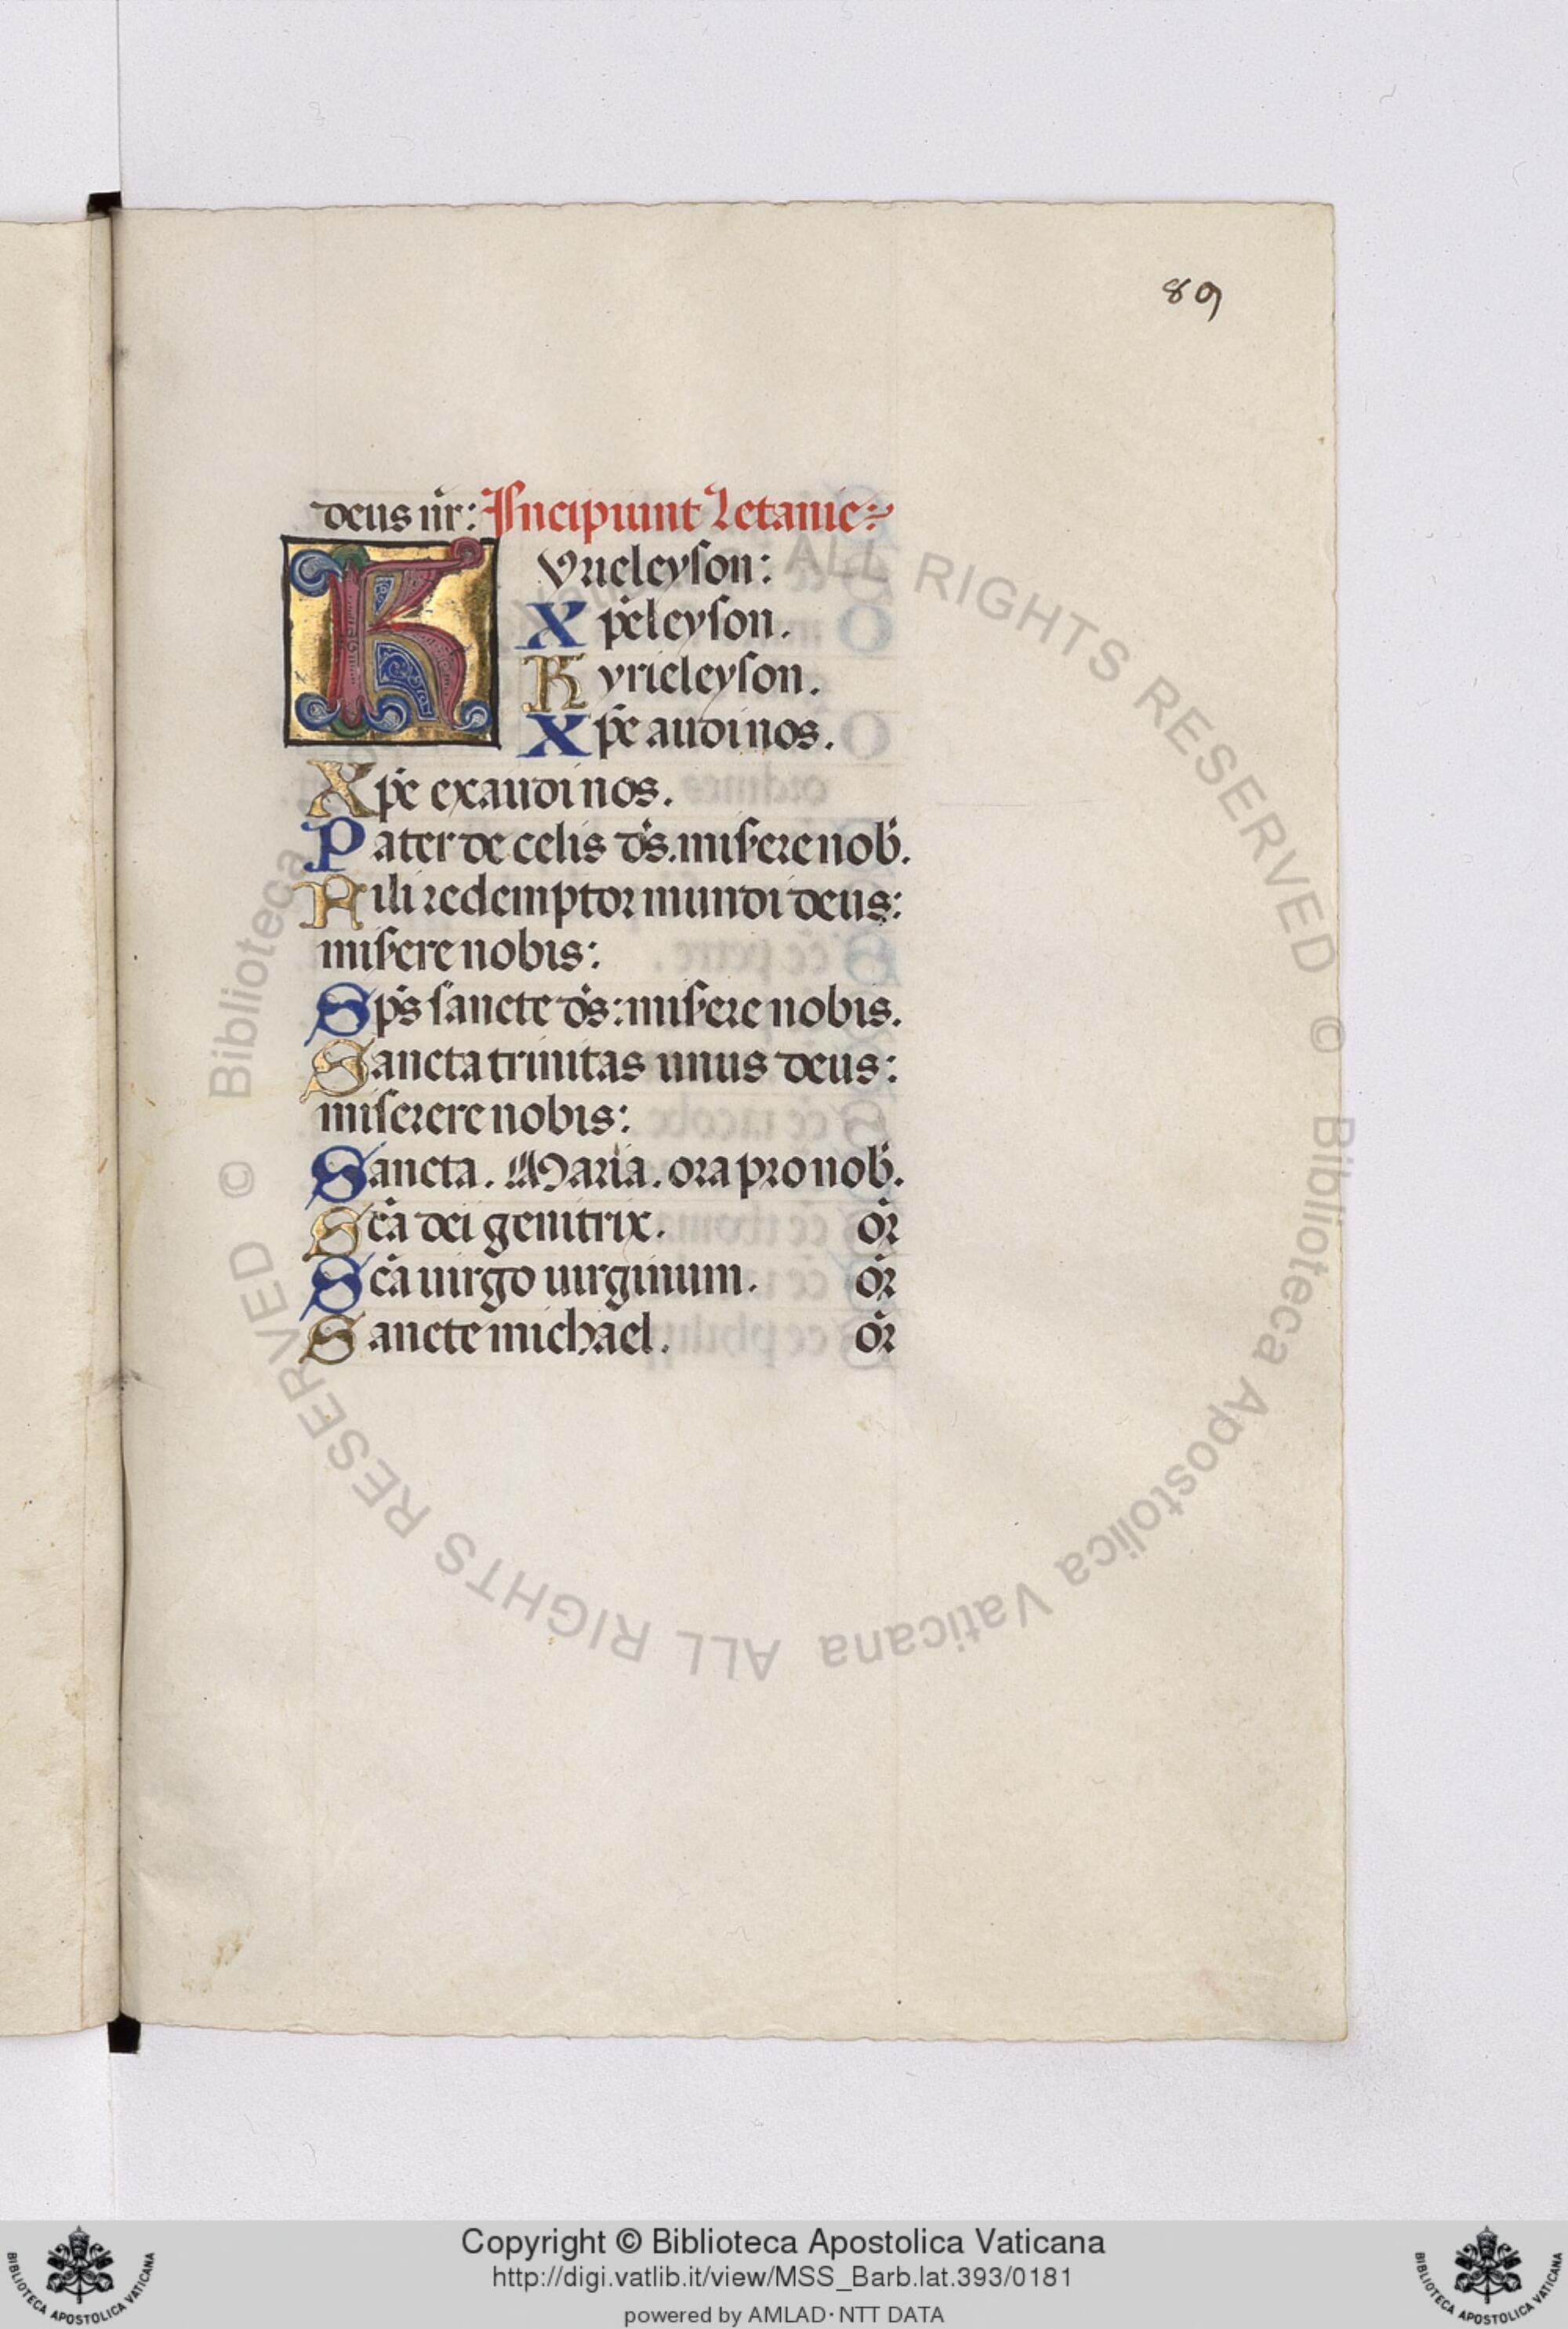 89
deus nr̄: Incipiunt Letanie:
Kyrieleyson:
Xp̄eleyson.
Kyrieleyson.
Xp̄e audi nos.
Xp̄e exaudi nos.
Pater de celis ds̄. misere nob̄.
Fili redemptor mundi deus:
misere nobis:
Sps̄ sancte ds̄: misere nobis.
Sancta trinitas unus deus:
miserere nobis:
Sancta. Maria. ora pro nob̄.
Scā dei genitrix. or̄
Scā uirgo uirginum. or̄
Sancte michael. or̄
© Biblioteca Apostolica Vaticana ALL RIGHTS RESERVED
© Biblioteca Apostolica Vaticana ALL RIGHTS RESERVED
Copyright © Biblioteca Apostolica Vaticana
http://digi.vatlib.it/view/MSS_Barb.lat.393/0181
powered by AMLAD·NTT DATA
BIBLIOTECA APOSTOLICA VATICANA
BIBLIOTECA APOSTOLICA VATICANA